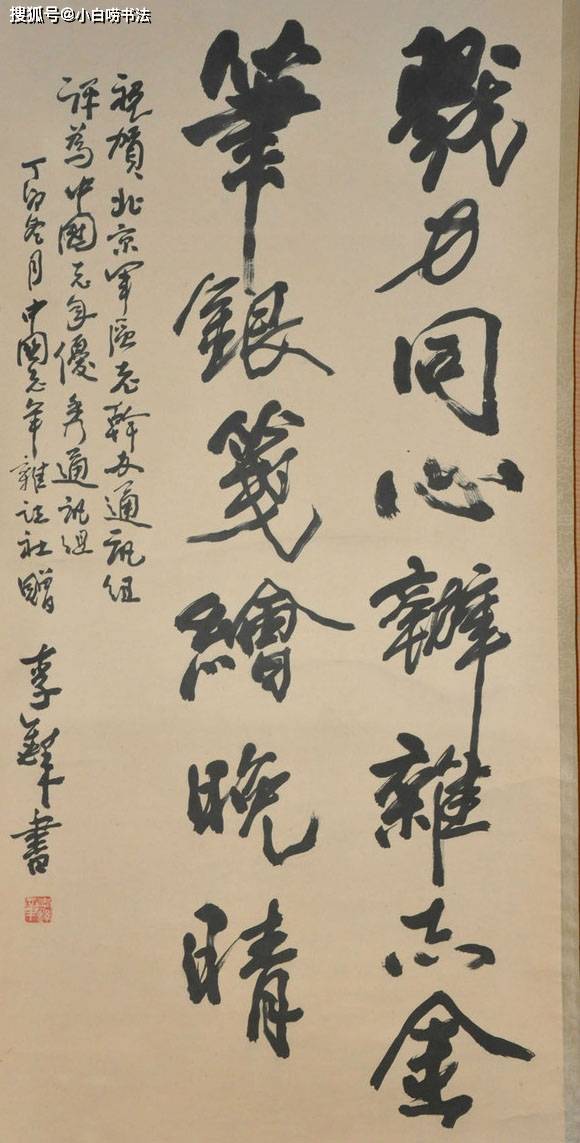 搜狐号@小白唠书法
戮力同心辦雜志金
筆銀箋繪晚晴
祝賀北京軍區老幹办通訊組
評為中國老年優秀通訊組
丁卯冬月中國老年雜誌社贈 李鐸書